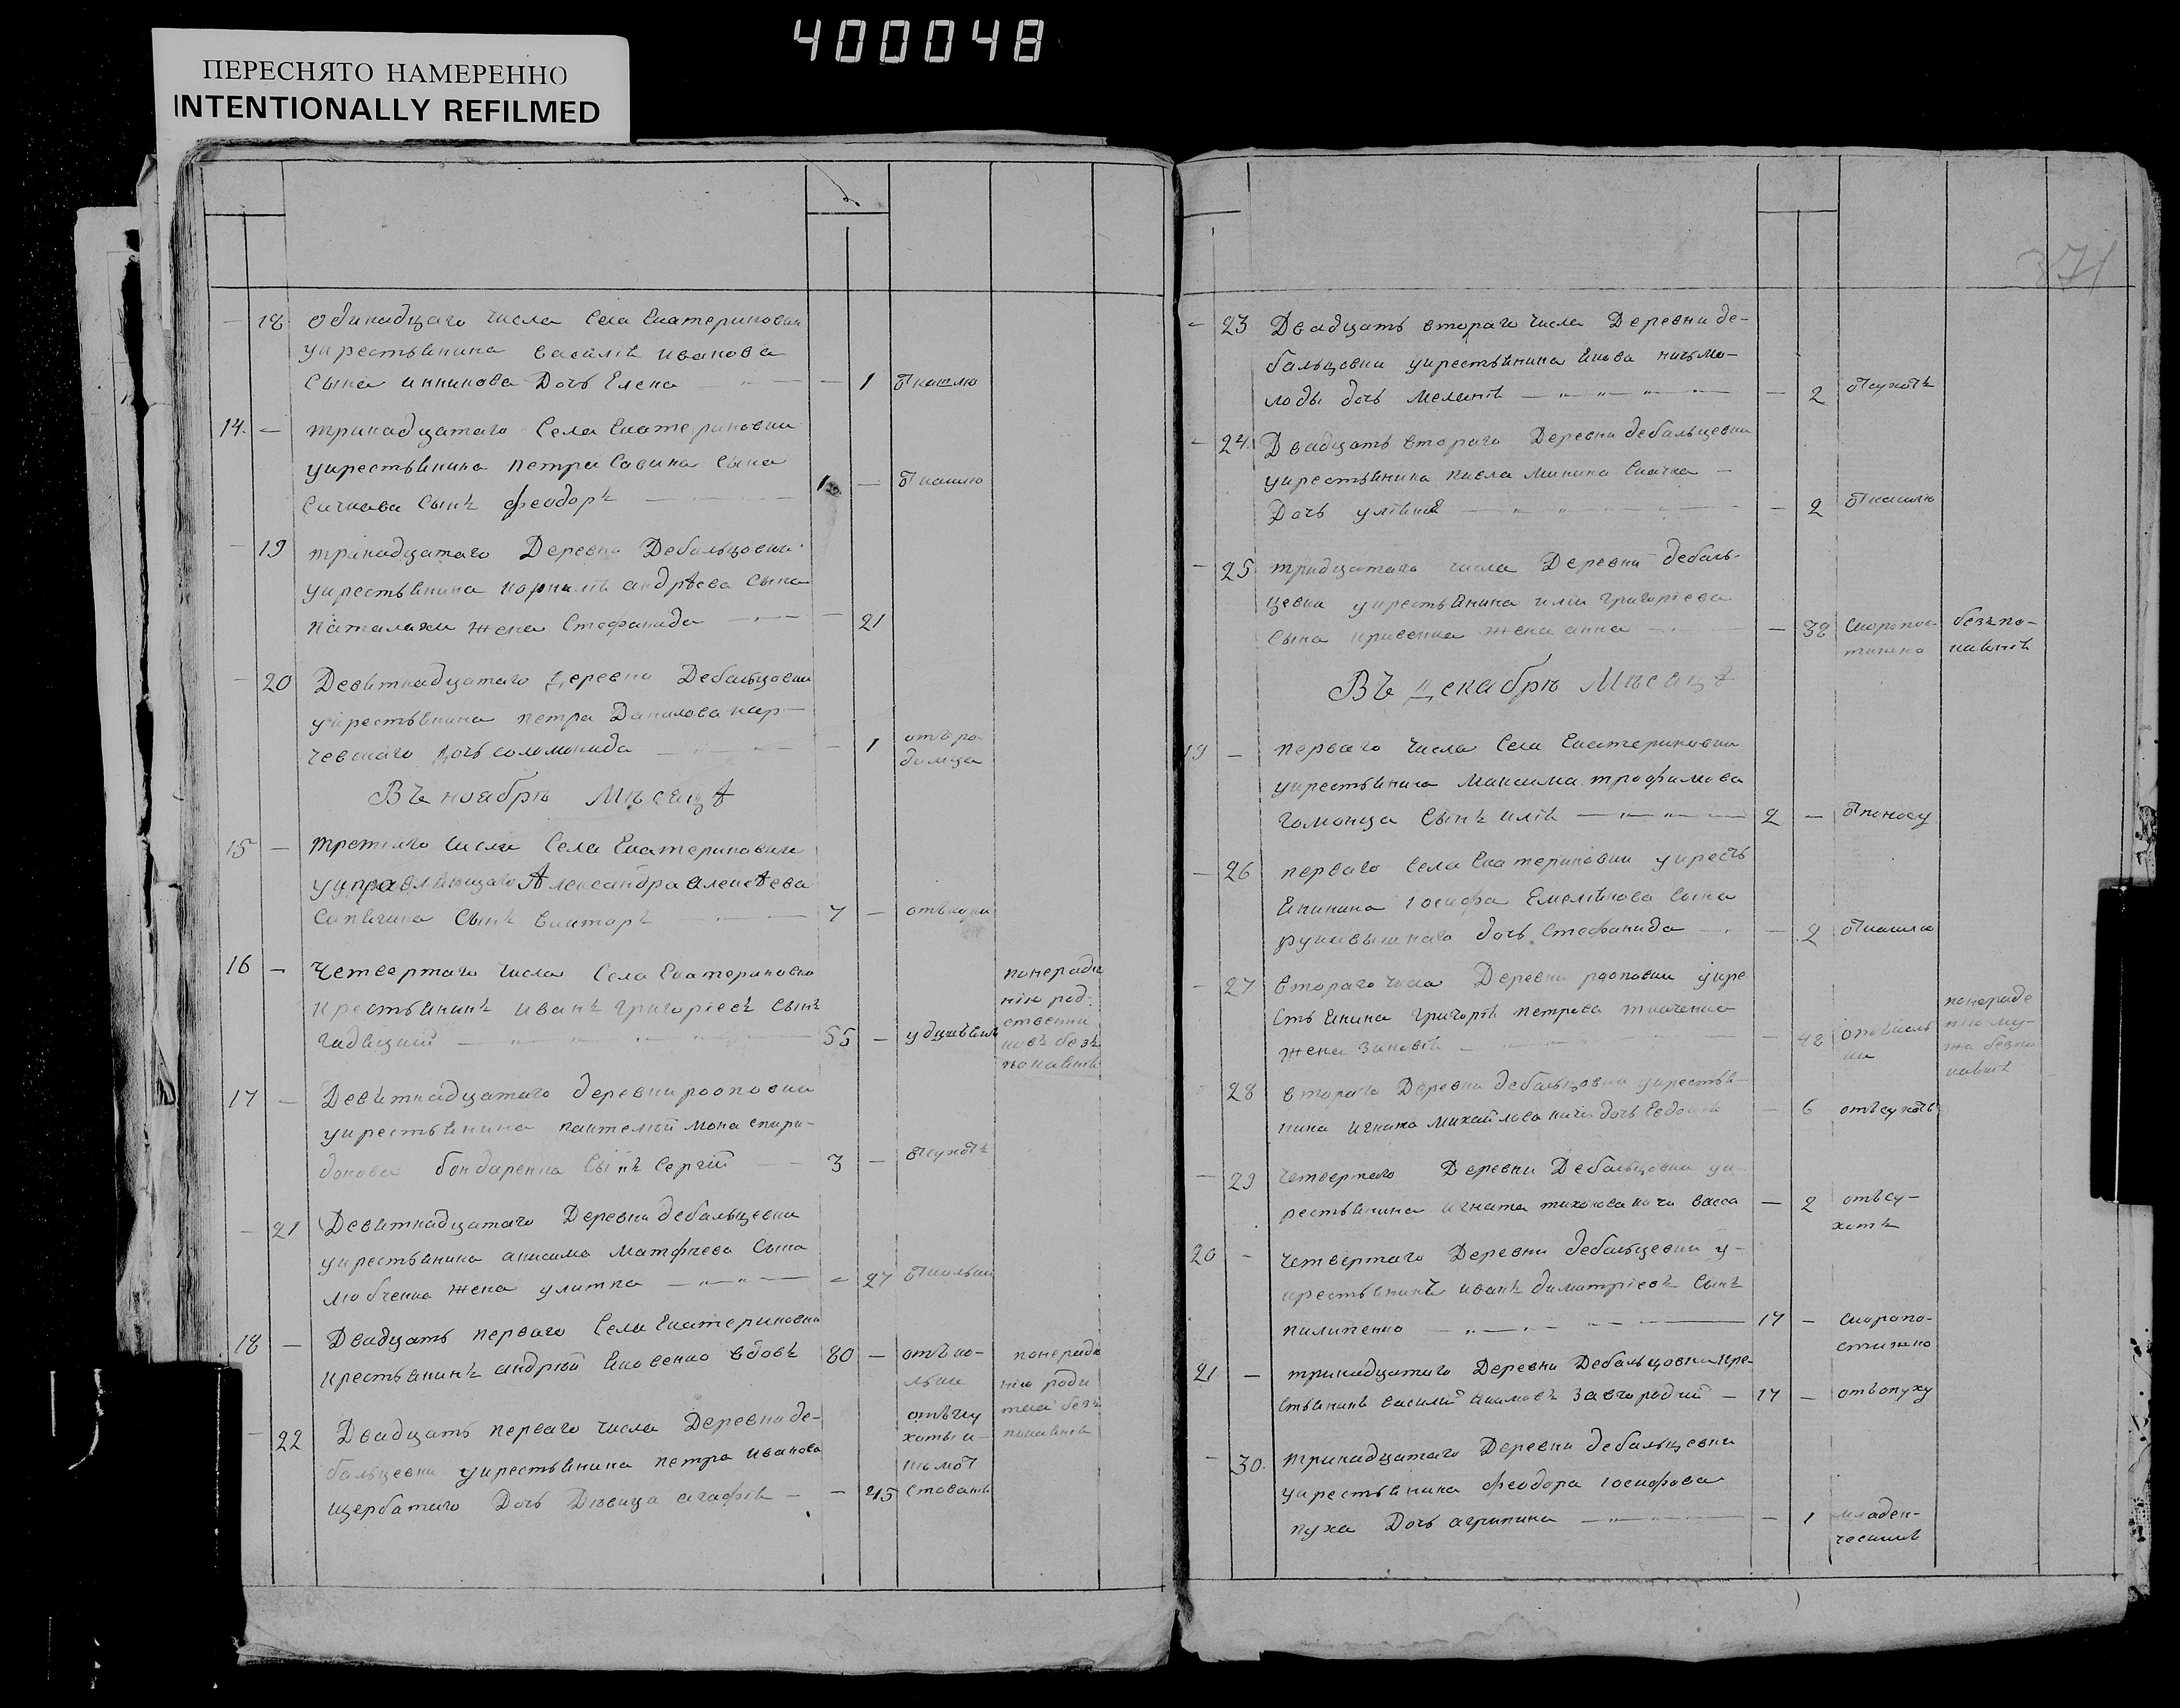 400048
ПЕРЕСНЯТО НАМЕРЕННО
INTENTIONALLY REFILMED
18 Одинадцаго числа Села Екатериновки
укрестьянина василія иванова
Сына Дочь Елена — 1 Ѿ кашлю
14. — тринадцатаго Села Екатериновки
укрестьянина петра Савина сына
Сычъ Сынъ феодоръ 1 — Ѿ кашлю
— 19 тринадцатаго Деревни Дебальцовки
укрестьянина корнилія андрѣева сына
жена Стефанида — 21
— 20 Девятнадцатаго Деревни Дебальцовки
укрестьянина петра Данилова кар-
чевскаго дочь соломонида — 1 отъ ро-
димца
Въ ноябрѣ Мѣсяцѣ
15 — третяго числа Села Екатериновки
ууправляющаго Александра алексѣева
Сынъ викторъ 7 — отъ кори
16 — Четвертаго числа Села Екатериновки
крестьянинъ иванъ григоріевъ сынъ
гадяцкій 55 — удушъемъ
понераде
нію род-
ственни
ковъ безъ
покаянія
17 — Девятнадцатаго деревни рооповки
укрестьянина пантелеймона спири-
донова бондаренка Сынъ Сергій 3 — Ѿ сухотъ
— 21 Девятнадцатаго Деревни дебальцевки
укрестьянина анисима матфѣева Сына
любченка жена улитка — 27 Ѿ кольки
18 — Двадцать перваго Села Екатериновки
крестьянинъ андрѣй Яковенко вдовъ 80 — отъ ко-
льки
понераде
нію роди
телей безъ
покаянія
— 22 Двадцать перваго числа Деревни де-
бальцевки укрестьянина петра иванова
щербатаго Дочь Дѣвица агафія — 45
отъ су
хоты и
371
— 23 Двадцать втораго числа Деревни де-
бальцовки укрестьянина Якова ничъмо-
лоды дочь меланія — 2 Ѿ сухотъ
— 24. Двадцать втораго Деревни дебальцевки
укрестьянина павла минина Скачка —
Дочь уліяна — 2 Ѿ кашлю
— 25 тридцатаго числа Деревни дебаль-
цевки укрестьянина иліи григоріева
сына кривенка жена анна — 38 Скоропос-
тижно
безъ по-
каянія
Въ Декабрѣ Мѣсяцѣ
19 — перваго числа Села Екатериновки
укрестьянина максима трофимова
гомонца Сынъ илія 2 — Ѿ поносу
— 26 перваго Села Екатериновки укресть
Янина іосифа Емеліянова сына
рукавышнаго дочь Стефанида — 2 Ѿ кашлю
— 27 втораго числа Деревни рооповки укре
стьянина григорія петрова ткаченка
жена зиновія — 48
понераде
нію му-
жа безпо
каянія
— 28 втораго Деревни дебальцовки укрестья-
нина игната михайлова дочь Евдокія — 6 отъ сухотъ
— 29 четвертаго Деревни Дебальцовки ук-
рестьянина игната тихонова васса — 2 отъ су-
хотъ
20 — четвертаго Деревни дебальцевки у-
крестьянинъ иванъ димитріевъ Сынъ
пилипенко 17 — скоропо-
стижно
21 — тринадцатаго Деревни Дебальцовки кре-
стьянинъ василій акимовъ завгородній — 17 — отъ опуху
— 30. тринадцатаго Деревни дебальцевки
укрестьянина феодора іосифова
пуха Дочь агрипина — 1 младен-
ческія